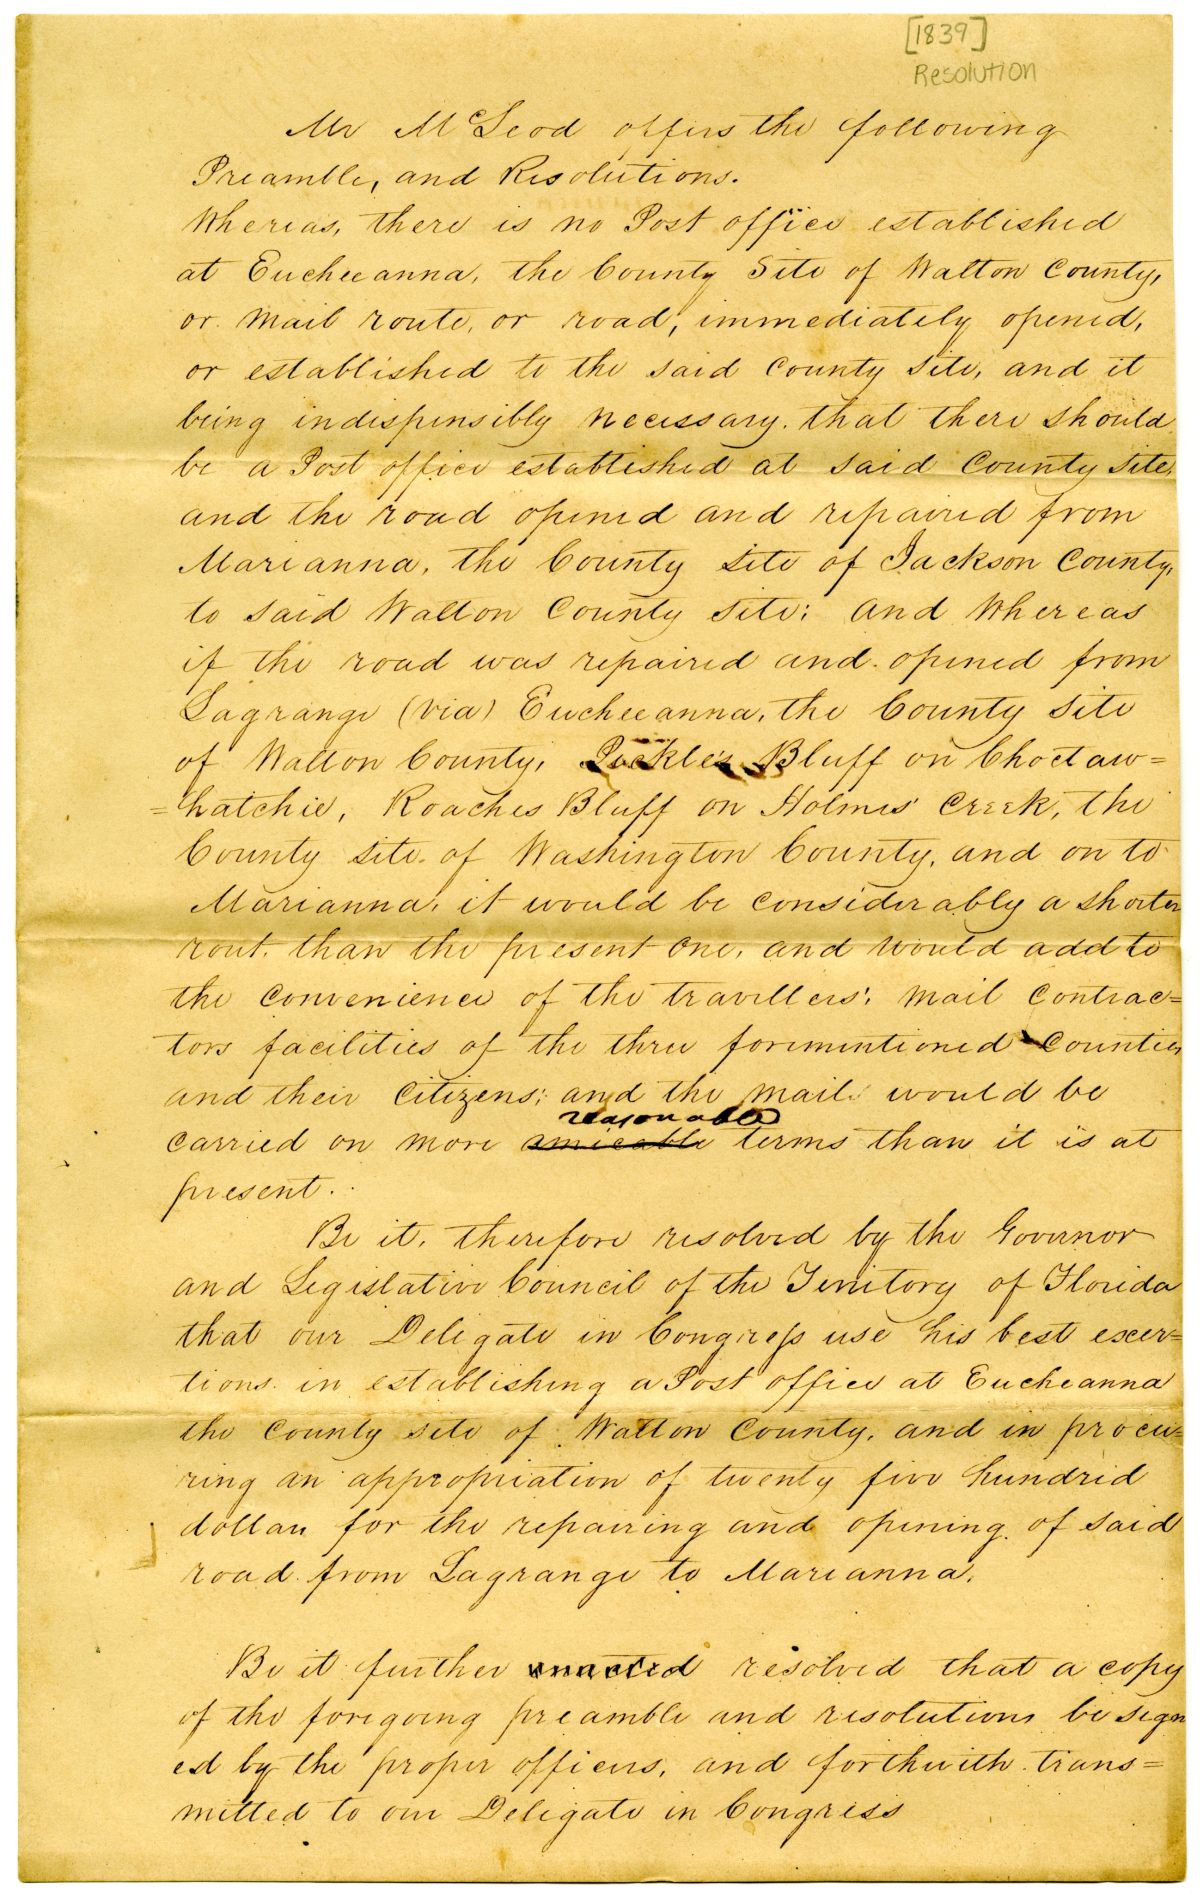 [1839]
Resolution
Mr McLeod offers the following
Preamble, and Resolutions.
Whereas, there is no Post office established
at Eucheeanna, the County Site of Walton County,
or mail route, or road, immediately opened,
or established to the said County Site, and it
being indispensibly necessary. that there should
be a Post office established at said County Site,
and the road opened and repaired from
Marianna, the County Site of Jackson County,
to said Walton County Site; and Whereas
if the road was repaired and opened from
Lagrange (via) Eucheeanna, the County Site
of Walton County, Bluff on Choctaw=
=hatchie, Roaches Bluff on Holmes' Creek, the
County Site of Washington County, and on to
Marianna, it would be considerably a shorter
rout. than the present one, and would add to
the convenience of the travellers; mail contrac=
tors facilities of the three forementioned Counties
and their citizens; and the mail would be
reasonable
carried on more amicable terms than it is at
present.
Be it, therefore resolved by the Governor
and Legislative Council of the Territory of Florida
that our Delegate in Congress use his best exer=
tions in establishing a Post office at Eucheanna
the County site of Walton County, and in procu=
ring an appropriation of twenty five hundred
dollars for the repairing and opening of said
road from Lagrange to Marianna.
Be it further enacted resolved that a copy
of the foregoing preamble and resolutions be sign
ed by the proper officers, and forthwith trans=
mitted to our Delegate in Congress